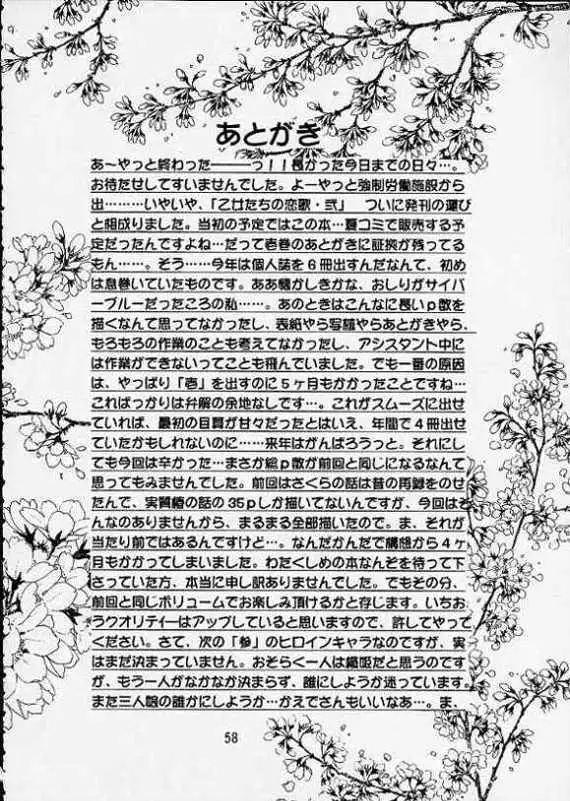 あとがき
あ～やっと終わった――――っ！！長かった今日までの日々…。
お待たせしてすいませんでした。よーやっと強制労働施設から
出………いやいや、「乙女たちの恋歌・弐」　ついに発刊の運び
と相成りました。当初の予定ではこの本…夏コミで販売する予
定だったんですよね…だって壱巻のあとがきに証拠が残ってる
もん……。そう……今年は個人誌を６冊出すんだなんて、初め
は息巻いていたものです。ああ懐かしきかな、おしりがサイバ
ーブルーだったころの私……。あのときはこんなに長いｐ数を
描くなんて思ってなかったし、表紙やら写植やらあとがきやら、
もろもろの作業のことも考えてなかったし、アシスタント中に
は作業ができないってことも飛んでいました。でも一番の原因
は、やっぱり「壱」を出すのに５ヶ月もかかったことですね…
こればっかりは弁解の余地なしです…。これがスムーズに出せ
ていれば、最初の目算が甘々だったとはいえ、年間で４冊出せ
ていたかもしれないのに……来年はがんばろうっと。それにし
ても今回は辛かった…まさか総ｐ数が前回と同じになるなんて
思ってもみませんでした。前回はさくらの話は昔の再録をのせ
たんで、実質椿の話の３５ｐしか描いてないんですが、今回はそ
んなのありませんから、まるまる全部描いたので。ま、それが
当たり前ではあるんですけど…。なんだかんだで構想から４ヶ
月もかかってしまいました。わたくしめの本なんぞを待って下
さっていた方、本当に申し訳ありませんでした。でもその分、
前回と同じボリュームでお楽しみ頂けるかと存じます。いちお
うクオリティーはアップしていると思いますので、許してやって
ください。さて、次の「参」のヒロインキャラなのですが、実
はまだ決まっていません。おそらく一人は織姫だと思うのです
が、もう一人がなかなか決まらず、誰にしようか迷っています。
また三人娘の誰かにしようか…かえでさんもいいなあ…。ま、
58